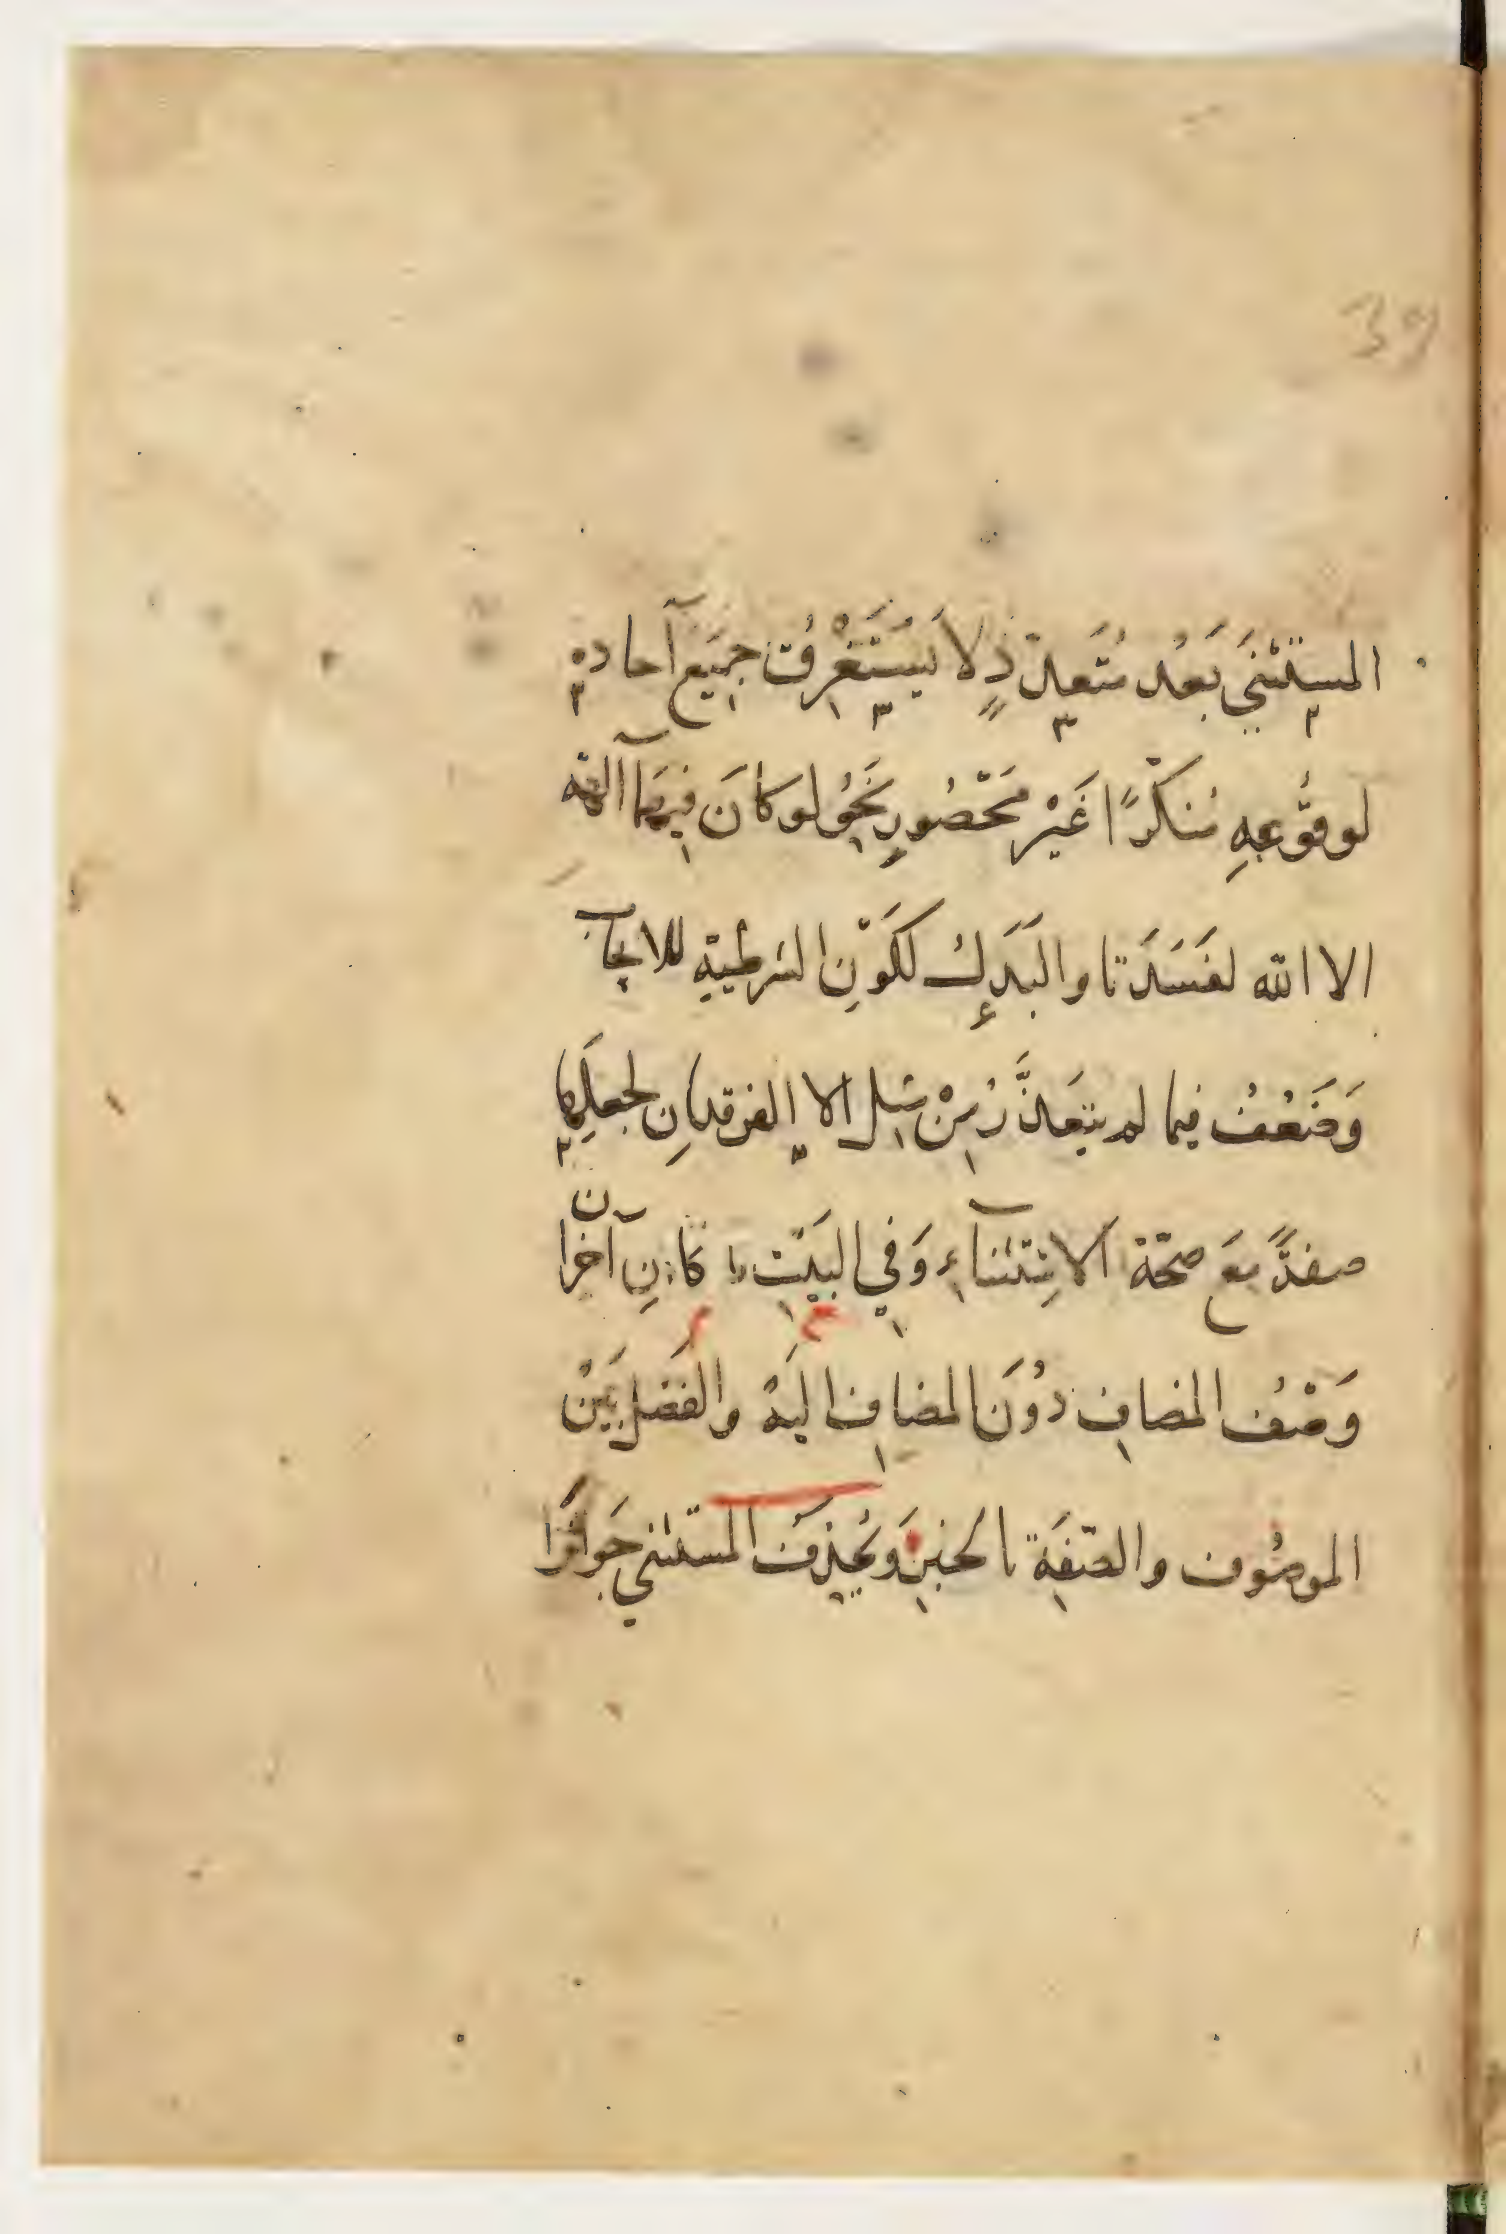 39
المستثنى بَعْد مُتَعدّدٍ لا يَسْتَغْرِقُ جَمِيعَ آحاده
لوقُوعِهِ مُنكّرًا غَيْر مَحْصُورٍ نَحْوُ لو كانَ فِيهِمَا آلهَة
الا الله لفَسَدَتا والبَدَلُ لكَوْنِ الشرطيةِ للايجاب
وَضَعُفَ فيما لم يتعَذَّرْ مِنْ مثل الا الفرقدانِ لجعلِها
صفةً مَعَ صحّة الاِستثناءِ وَفي البَيْت كانِ آخران
وَصْفُ المضاف دُوْنَ المضاف اليْه والفَصْل بَيْن
الموصُوف والصّفَة بالخبرِ وَيُحْذَفُ المستثنى جَوازًا